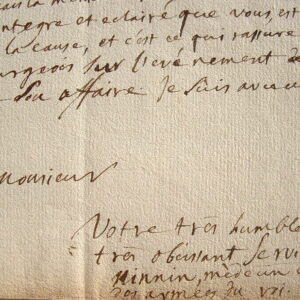 integre et eclairé que vous, est
la cause, et c'est ce qui rassure
urgeois sur l'evénement de
son affaire. Je suis avec
monsieur
Votre tres humble
tres obeissant servi
médecin
des armées du roi